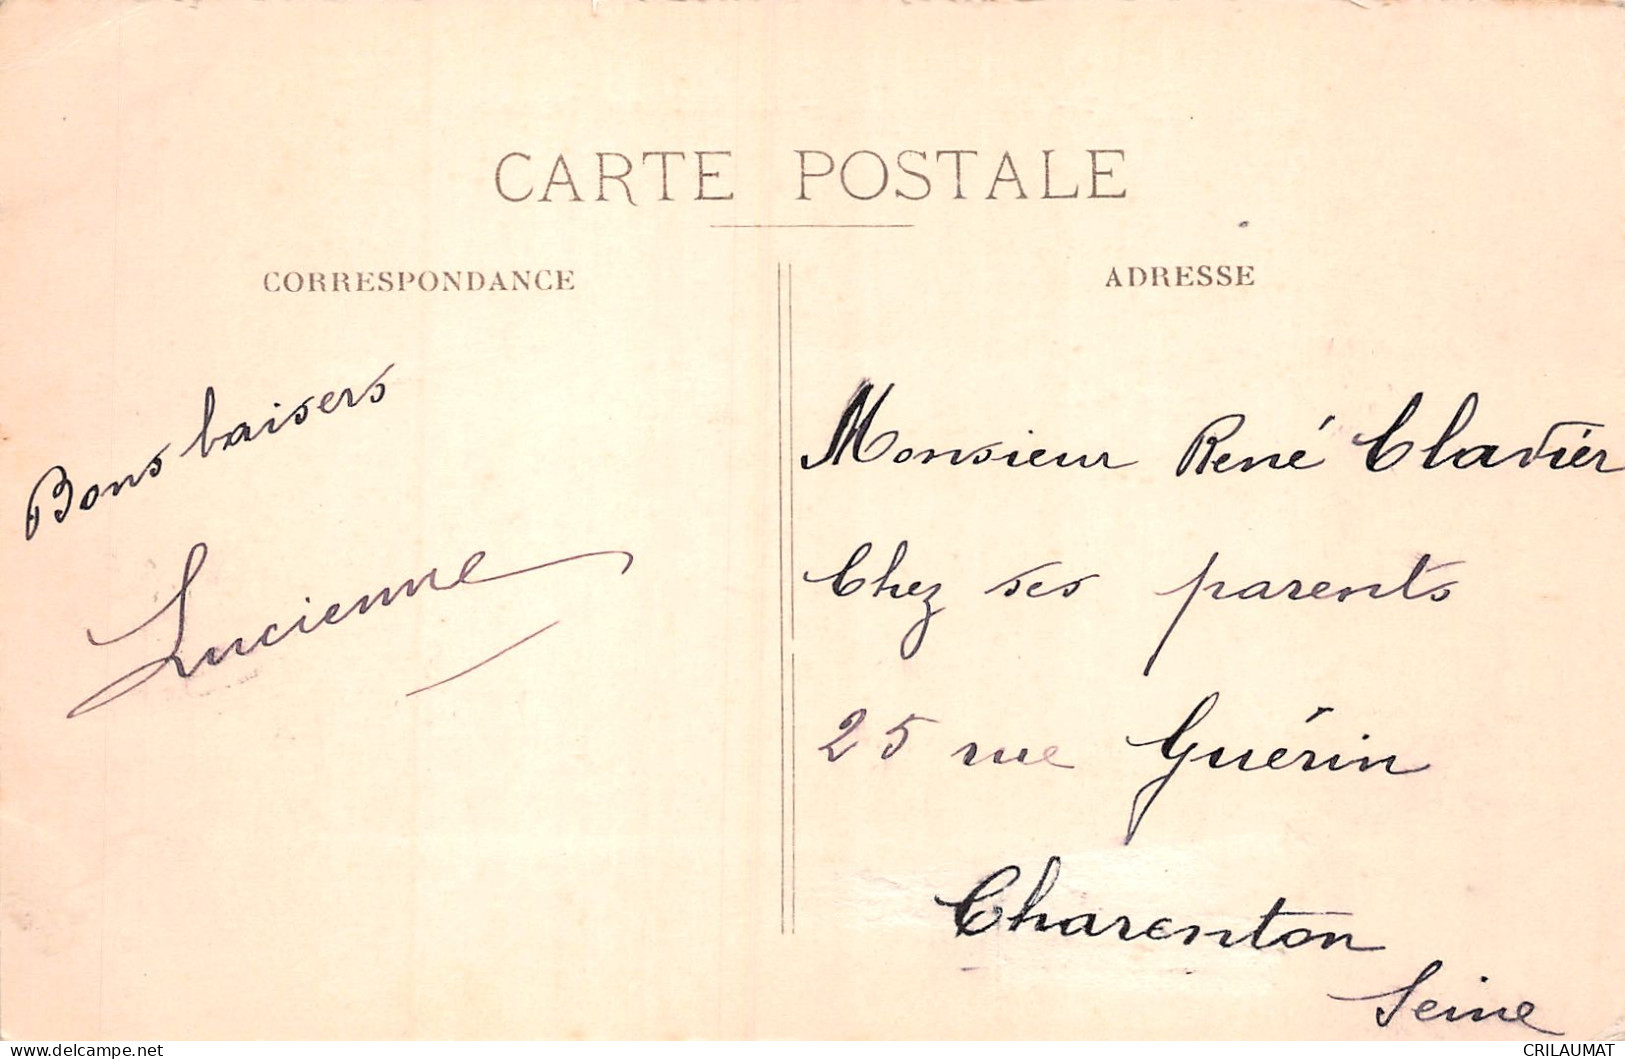 CARTE POSTALE
CORRESPONDANCE
Bons baisers
Lucienne
ADRESSE
Monsieur René Clavier
Chez ses parents
25 rue Guérin
Charenton
Seine
CRILAUMAT